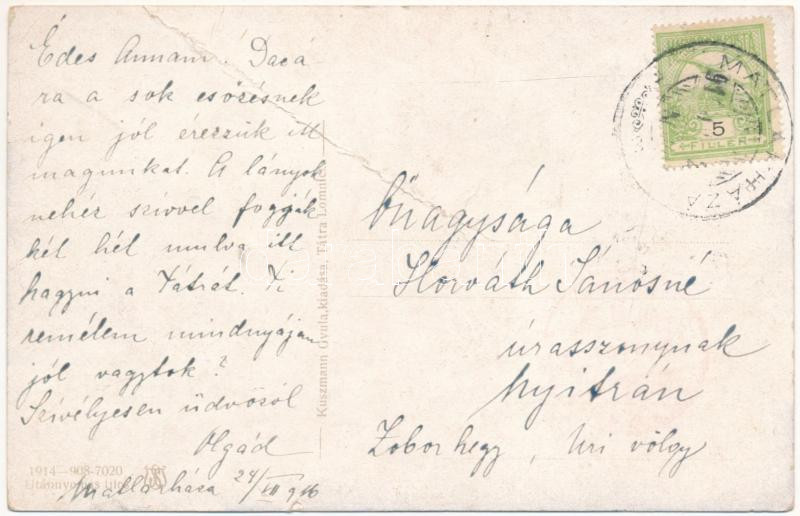 Édes Annám! Dacá
ra a sok esőzésnek
igen jól érezzük itt
magunkat. A lányok
nehéz szívvel fogják
két hét mulva itt
hagyni a Tátrát. Ti
remélem mindnyájan
jól vagytok?
Szívélyesen üdvözöl
Olgád
Matlárháza 24/VII 916
1914—908-7020
Utánnyomás
Kuszmann Gyula kiadása, Tátra Lomnic.
5
FILLÉR
Őnagysága
Horváth Jánosné
úrasszonynak
Nyitrán
Zobor hegy, Uri völgy